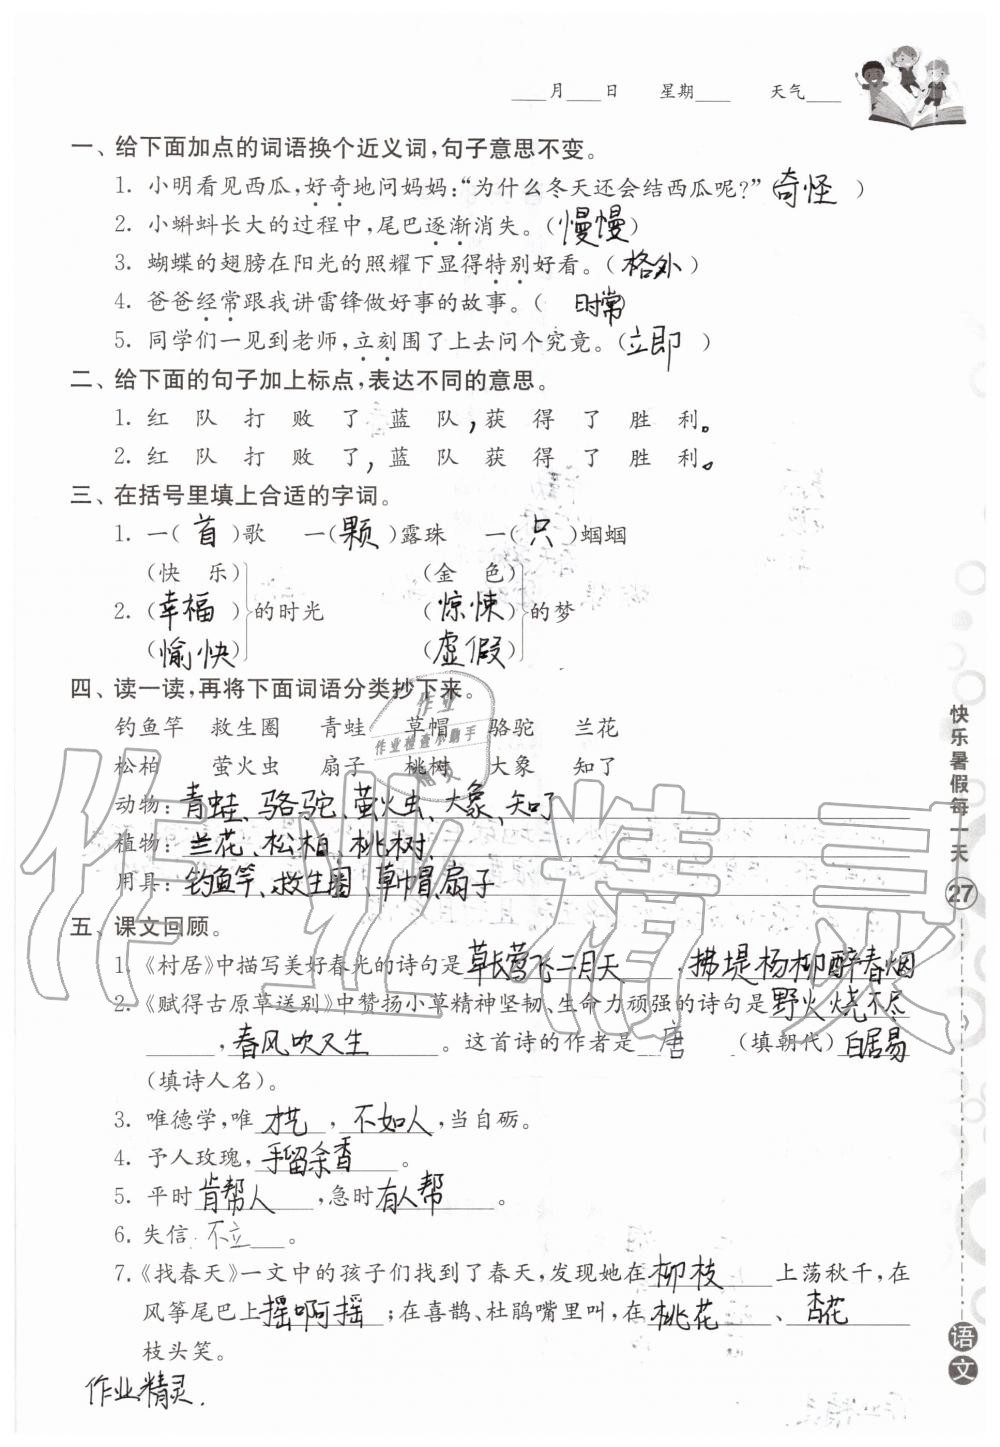 月 日 星期 天气
一、给下面加点的词语换个近义词,句子意思不变。
1. 小明看见西瓜,好奇地问妈妈:“为什么冬天还会结西瓜呢?”(奇怪)
2. 小蝌蚪长大的过程中,尾巴逐渐消失。(慢慢)
3. 蝴蝶的翅膀在阳光的照耀下显得特别好看。(格外)
4. 爸爸经常跟我讲雷锋做好事的故事。(时常)
5. 同学们一见到老师,立刻围了上去问个究竟。(立即)
二、给下面的句子加上标点,表达不同的意思。
1. 红 队 打 败 了 蓝 队,获 得 了 胜 利。
2. 红 队 打 败 了,蓝 队 获 得 了 胜 利。
三、在括号里填上合适的字词。
1. 一(首)歌 一(颗)露珠 一(只)蝈蝈
(快 乐) (金 色)
2. (幸福)的时光 (惊悚)的梦
(愉快) (虚假)
四、读一读,再将下面词语分类抄下来。
钓鱼竿 救生圈 青蛙 草帽 骆驼 兰花
松柏 萤火虫 扇子 桃树 大象 知了
动物:青蛙、骆驼、萤火虫、大象、知了
植物:兰花、松柏、桃树.
用具:钓鱼竿、救生圈、草帽、扇子
五、课文回顾。
1.《村居》中描写美好春光的诗句是草长莺飞二月天,拂堤杨柳醉春烟
2.《赋得古原草送别》中赞扬小草精神坚韧、生命力顽强的诗句是野火烧不尽
,春风吹又生。这首诗的作者是唐(填朝代)白居易
(填诗人名)。
3. 唯德学,唯才艺,不如人,当自砺。
4. 予人玫瑰,手留余香。
5. 平时肯帮人,急时有人帮。
6. 失信不立。
7.《找春天》一文中的孩子们找到了春天,发现她在柳枝上荡秋千,在
风筝尾巴上摇啊摇;在喜鹊、杜鹃嘴里叫,在桃花、杏花
枝头笑。
作业精灵.
快乐暑假每一天
27
语文
作业
作业检查小助手
精灵
作业精灵